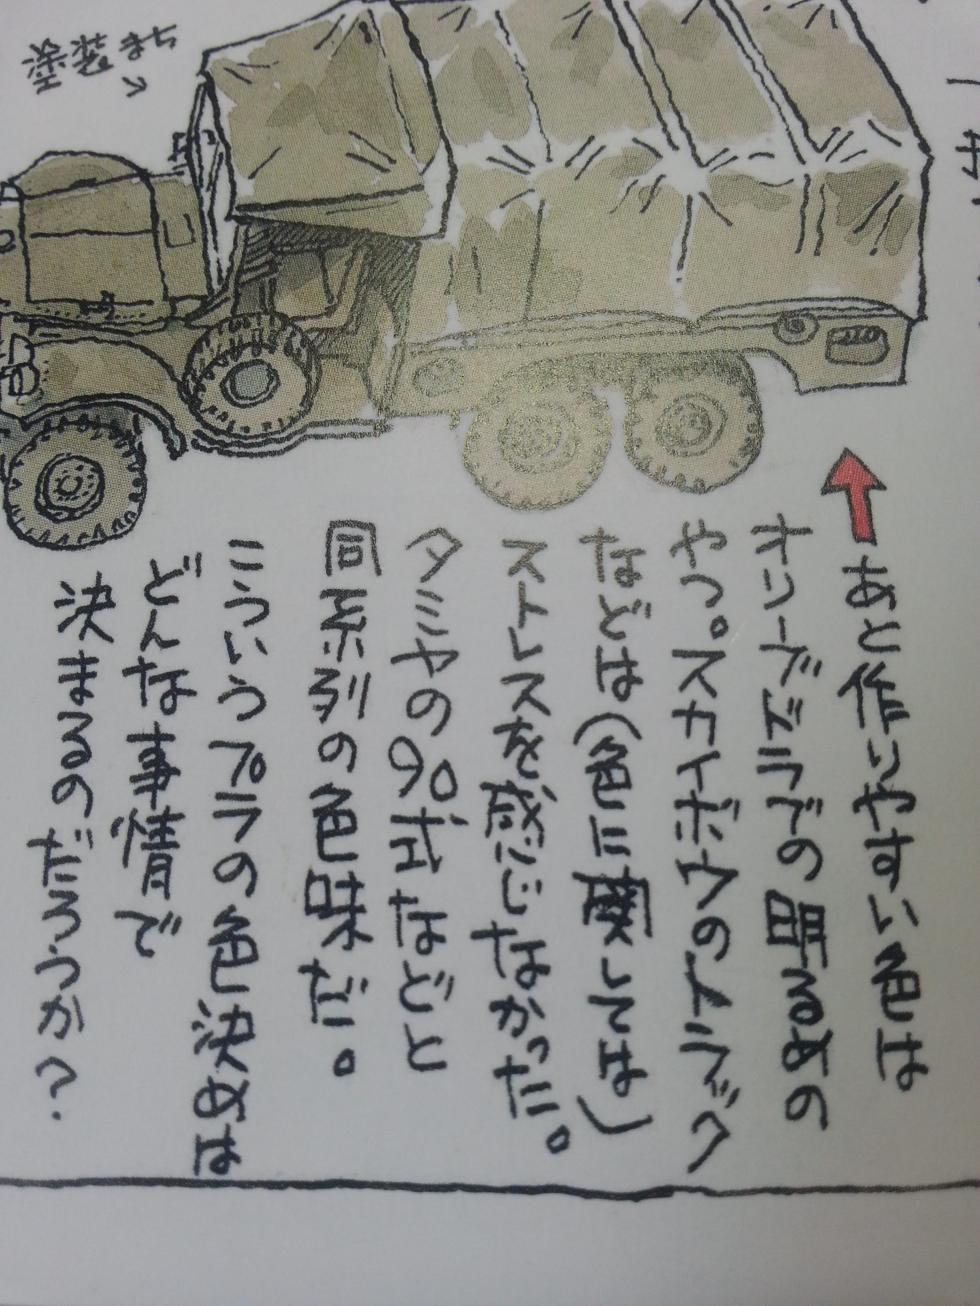 塗装まち
あと作りやすい色は
オリーブドラブの明るめの
やつ。スカイボウのトラック
などは(色に関しては)
ストレスを感じなかった。
タミヤの90式などと
同系列の色味だ。
こういうプラの色決めは
どんな事情で
決まるのだろうか?